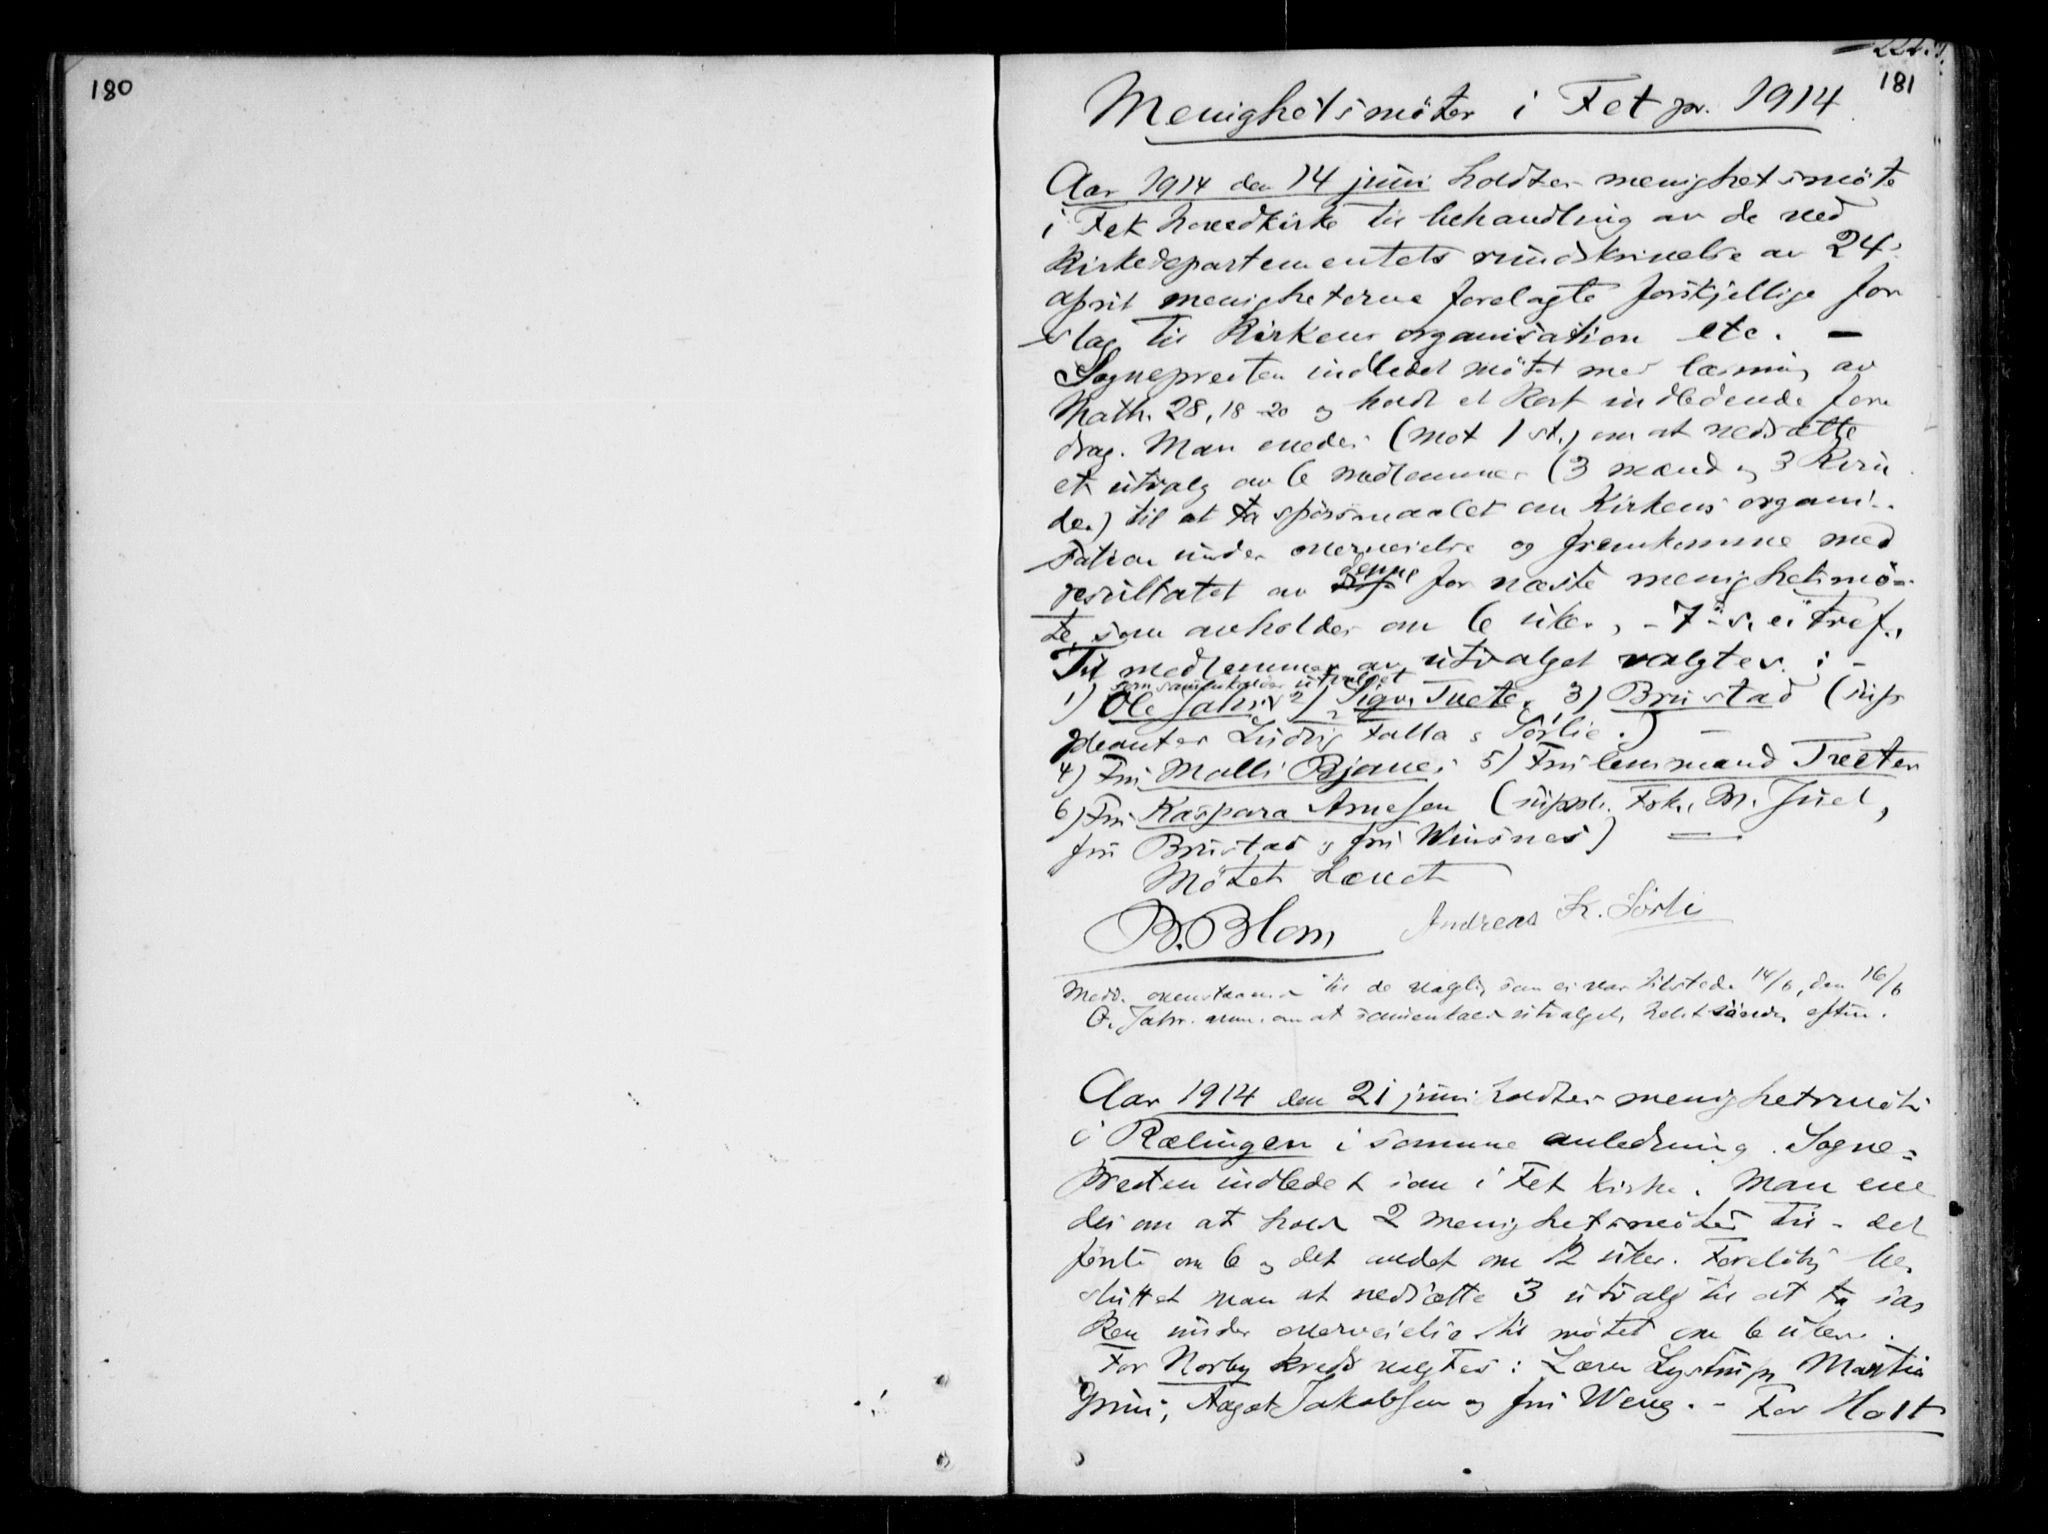 180
181
Menighetsmöter i Fet pr. 1914.
Aar 1914 den 14 juni holdtes menighetsmöte
i Fet hovedkirke til behandling av de ved
Kirkedepartementets rundskrivelse av 24.
april menigheterne forelagte forskjellige for
slag til Kirkens organisation etc. —
Sognepresten indledet mötet med læsning av
Math. 28, 18-20 og holdt et kort indledende fore
drag. Man enedes (mot 1 st.) om at nedsætte
et utvalg av 6 medlemmer (3 mænd og 3 kvin
der) til at ta spörsmaalet om Kirkens organi-
sation under overveielse og fremkomme med
resultatet av denne for næste menighetsmö-
te, som avholdes om 6 uker,
Til medlemmer av utvalget valgtes: -
som sammenkalder utvalget
1) Ole Jahr 2) Sigv. Tvete, 3) Brustad (sup
pleanter Ludvig Falla og Sörlie.) —
4) Fru Malli Bjanes 5) Fru lensmand Treeter
6) Fru Kaspara Arnesen (suppl. Frk. M. Juel,
fru Brustad og fru Winsnes) =
Mötet hævet
B. Blom Andreas K. Sörli
Medd. ovenstaaende til de valgte, som ei var tilstede 14/6, den 16/6
O. Jahr anm. om at sammenkalde utvalget,
Aar 1914 den 21 juni holdtes menighetsmöte
i Rælingen i samme anledning. Sogne-
presten indledet som i Fet kirke. Man ene
des om at holde 2 menighetsmöter til - det
förste om 6 og det andet om 12 uker. Forelöbig be
sluttet man at nedsætte 3 utvalg til at ta sa
ken under overveielse til mötet om 6 uker.
For Norby kreds valgtes: Lærer Lystrup, Martin
Grini, Aagot Jakobsen og fru Weng. - For Holt